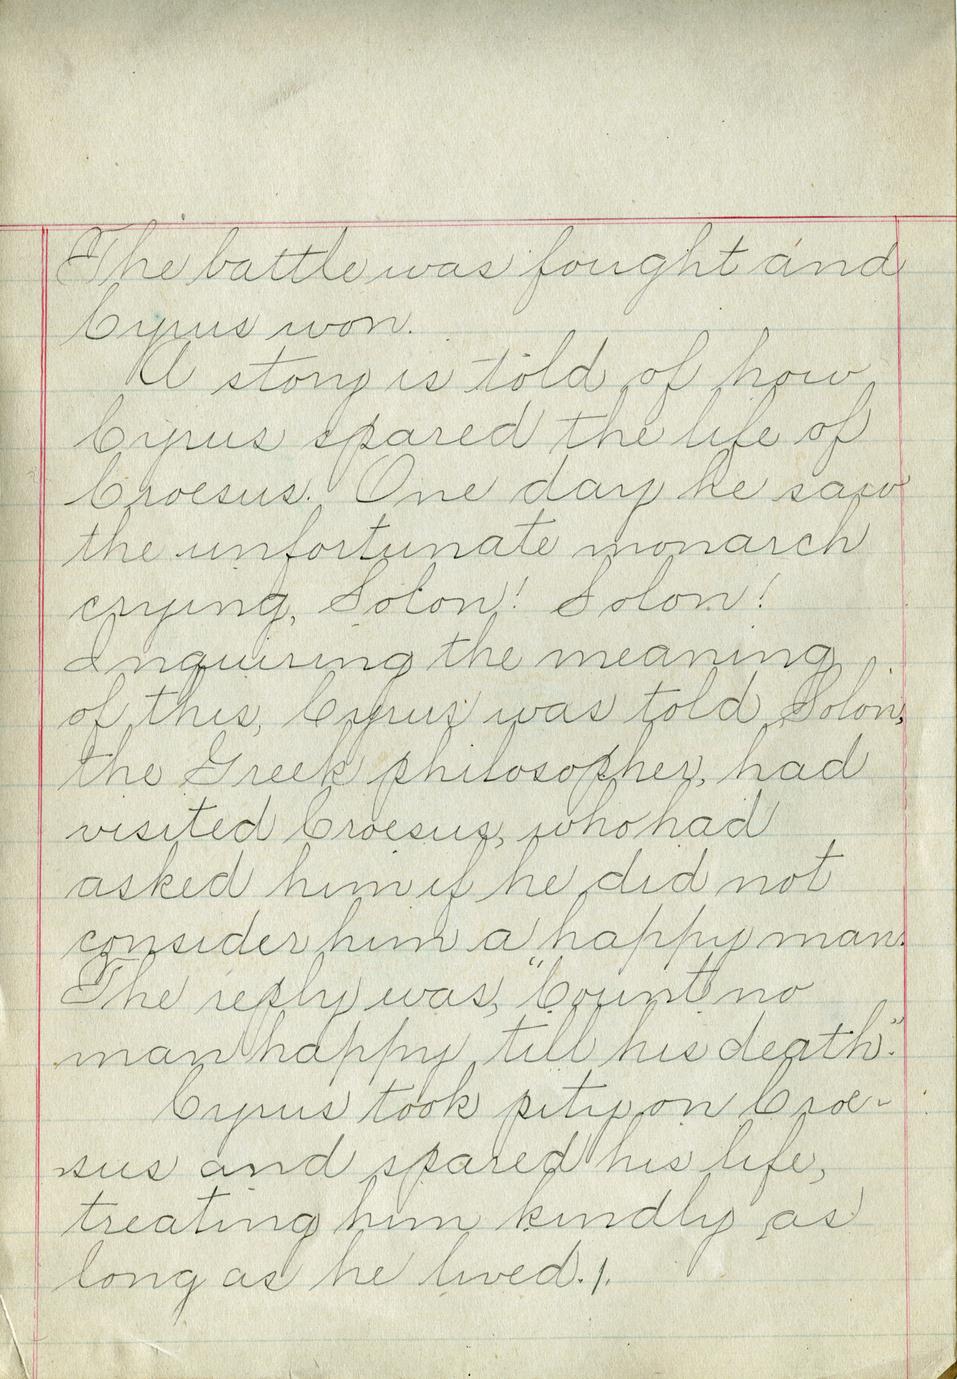 The battle was fought and
Cyrus won.
A story is told of how
Cyrus spared the life of
Croesus. One day he saw
the unfortunate monarch
crying, Solon! Solon!
Inquiring the meaning
of this, Cyrus was told Solon,
the Greek philosopher, had
visited Croesus, who had
asked him if he did not
consider him a happy man.
The reply was, "Count no
man happy till his death".
Cyrus took pity on Croe-
sus and spared his life,
treating him kindly as
long as he lived.